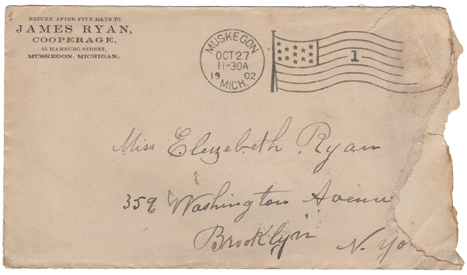 RETURN AFTER FIVE DAYS TO
JAMES RYAN,
COOPERAGE,
55 HAMBURG STREET,
MUSKEGON, MICHIGAN.
MUSKEGON
OCT 27
11-30A
19 02
MICH.
1
Miss Elizebeth Ryan
359 Washington Avenue
Brooklyn
N. Yo